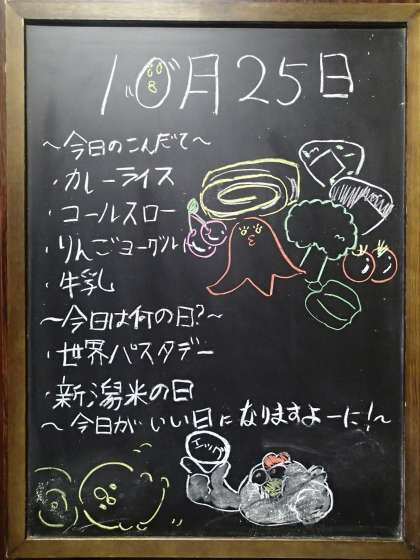 10月25日
～今日のこんだて～
・カレーライス
・コールスロー
・りんごヨーグルト
・牛乳
～今日は何の日?～
・世界パスタデー
・新潟米の日
～今日がいい日になりますよーに!～
エッグ